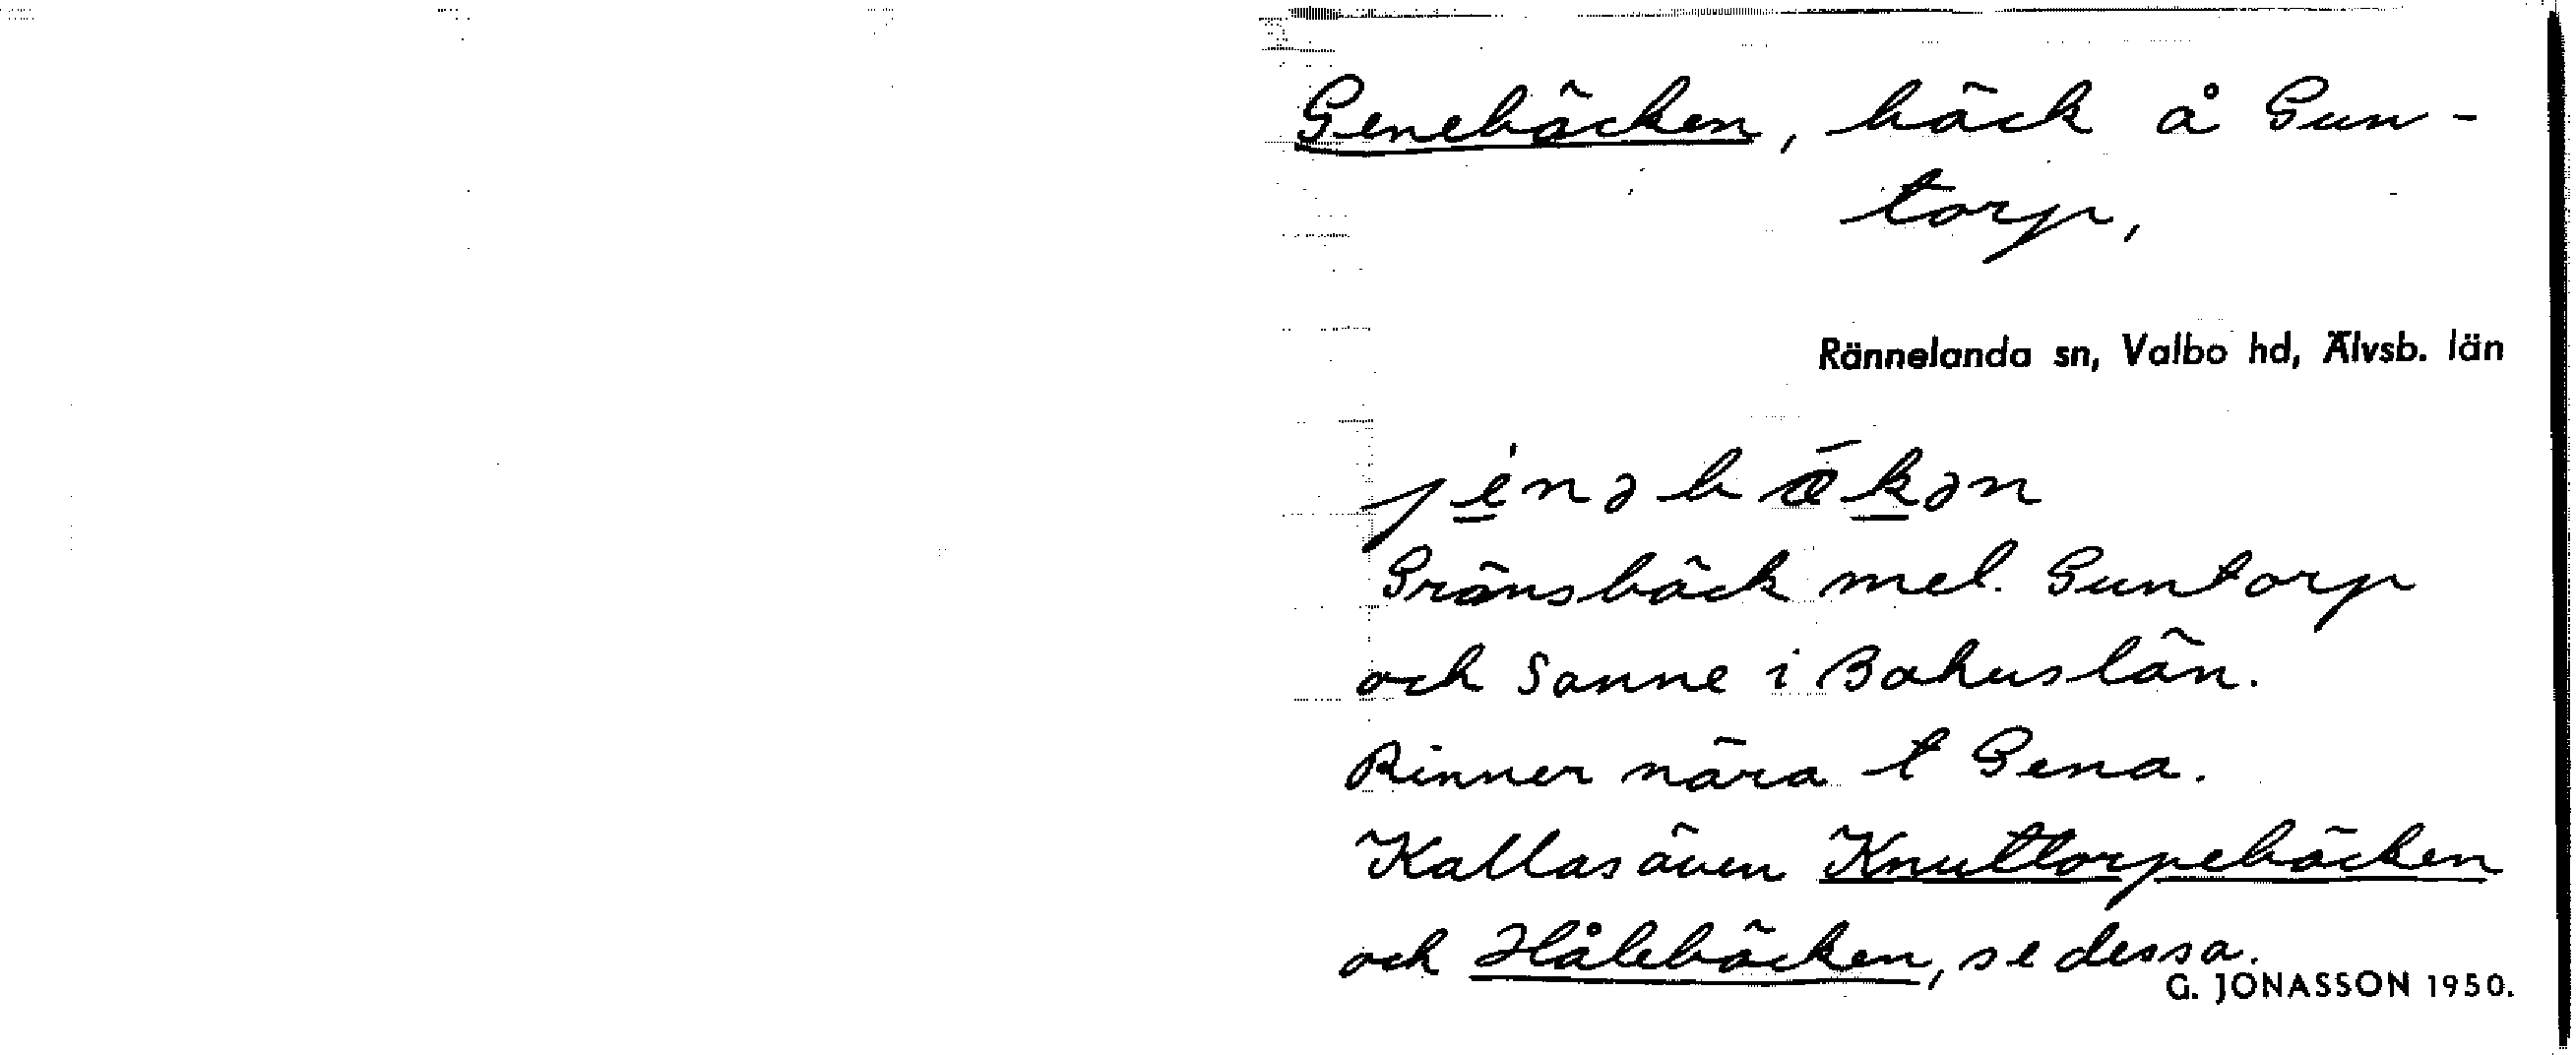 Genebäcken, bäck å Gun-
torp,
Rännelanda sn, Valbo hd, Älvsb. län
je̱nəbǽḵən
Gränsbäck mel. Guntorp
och Sanne i Bohuslän.
Rinner nära t Gena.
Kallas även Knuttorpebäcken
och Hålebäcken, se dessa.
G. JONASSON 1950.